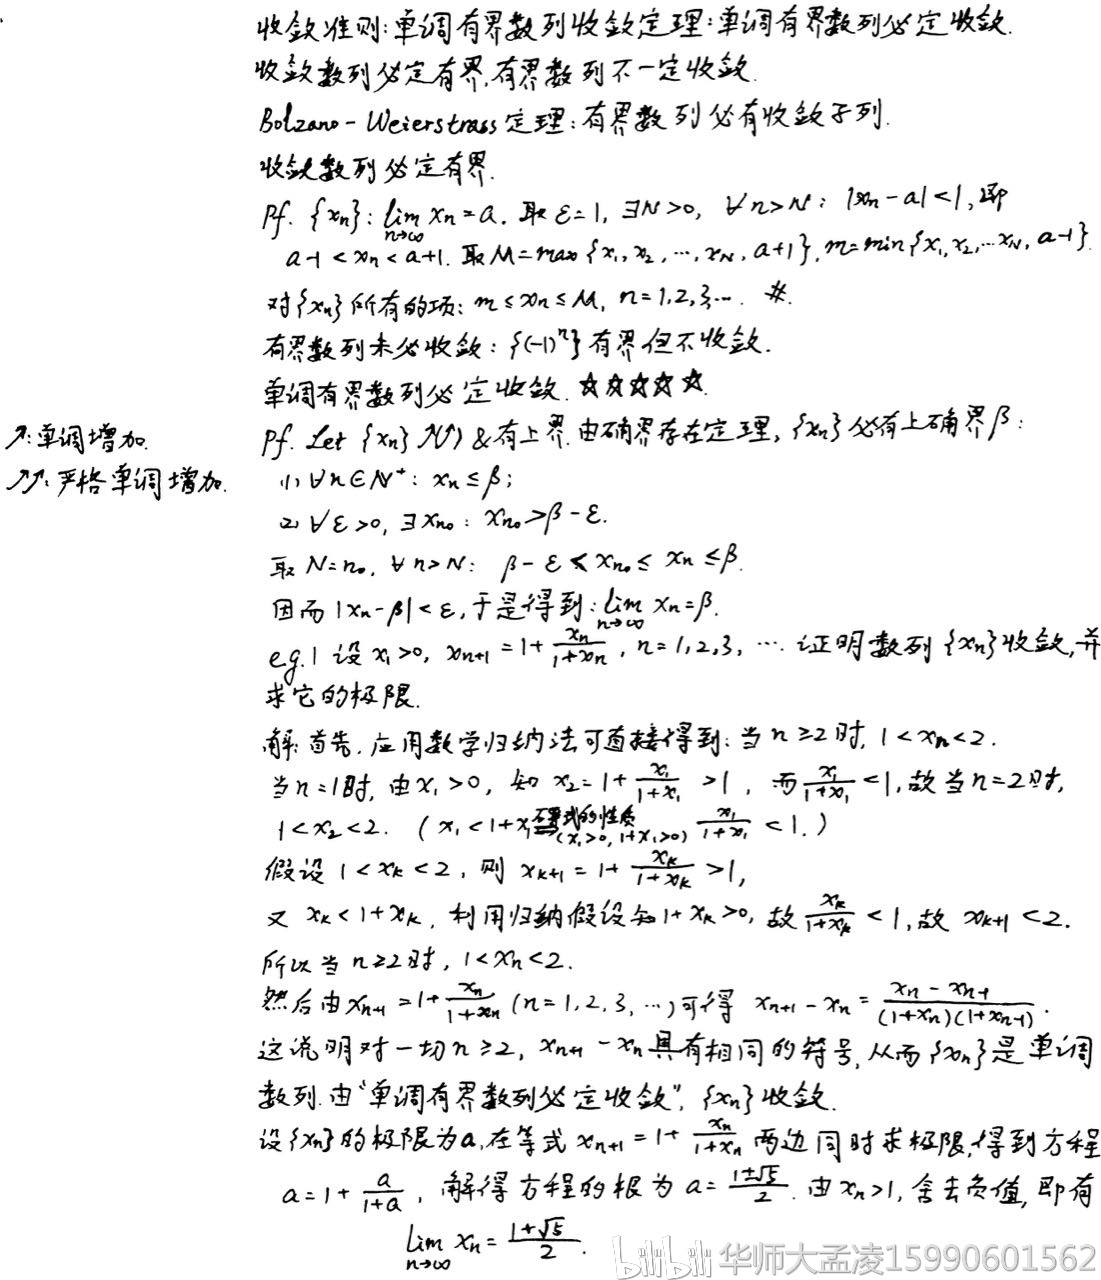 收敛准则:单调有界数列收敛定理:单调有界数列必定收敛.
收敛数列必定有界,有界数列不一定收敛.
Bolzano-Weierstrass定理:有界数列必有收敛子列.
收敛数列必定有界.
Pf. {xₙ}: lim_{n→∞} xₙ=a. 取 ε=1, ∃N>0, ∀n>N: |xₙ-a|<1, 即
a-1<xₙ<a+1. 取M=max{x₁,x₂,⋯,x_N,a+1}, m=min{x₁,x₂,⋯x_N,a-1}.
对{xₙ}所有的项: m≤xₙ≤M, n=1,2,3,⋯. #.
有界数列未必收敛: {(-1)ⁿ}有界但不收敛.
单调有界数列必定收敛. ☆☆☆☆☆.
↗:单调增加.
↗↗:严格单调增加.
Pf. Let {xₙ} ↗(↗) &有上界. 由确界存在定理, {xₙ}必有上确界β:
(1) ∀n∈N⁺: xₙ≤β;
(2) ∀ε>0, ∃x_{n₀}: x_{n₀}>β-ε.
取N=n₀, ∀n>N: β-ε<x_{n₀}≤xₙ≤β.
因而|xₙ-β|<ε, 于是得到: lim_{n→∞} xₙ=β.
e.g.1 设x₁>0, x_{n+1}=1+\frac{xₙ}{1+xₙ}, n=1,2,3,⋯. 证明数列{xₙ}收敛,并
求它的极限.
解:首先,应用数学归纳法可直接得到:当n≥2时, 1<xₙ<2.
当n=1时, 由x₁>0, 知x₂=1+\frac{x₁}{1+x₁}>1, 而\frac{x₁}{1+x₁}<1,故当n=2时,
1<x₂<2. (x₁<1+x₁ 不等式的性质 ⟹ (x₁>0, 1+x₁>0) \frac{x₁}{1+x₁}<1.)
假设1<x_k<2, 则x_{k+1}=1+\frac{x_k}{1+x_k}>1,
又x_k<1+x_k, 利用归纳假设知1+x_k>0, 故\frac{x_k}{1+x_k}<1,故x_{k+1}<2.
所以当n≥2时, 1<xₙ<2.
然后由x_{n+1}=1+\frac{xₙ}{1+xₙ}(n=1,2,3,⋯)可得 x_{n+1}-xₙ=\frac{xₙ-x_{n-1}}{(1+xₙ)(1+x_{n-1})}.
这说明对一切n≥2, x_{n+1}-xₙ具有相同的符号,从而{xₙ}是单调
数列.由“单调有界数列必定收敛”, {xₙ}收敛.
设{xₙ}的极限为a,在等式x_{n+1}=1+\frac{xₙ}{1+xₙ}两边同时求极限,得到方程
a=1+\frac{a}{1+a}, 解得方程的根为a=\frac{1±√5}{2}. 由xₙ>1, 舍去负值, 即有
lim_{n→∞} xₙ=\frac{1+√5}{2}.
bilibili 华师大孟凌15990601562